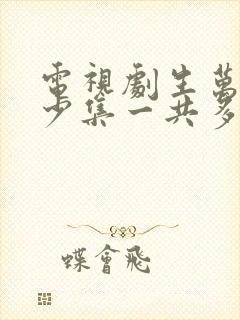 電視劇生萬
少集一共多
蝶會飛